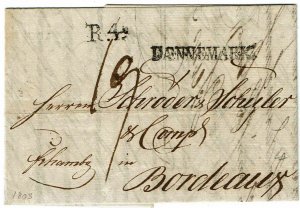 R.4.
DANNEMARK
Herren Schröder & Schyler
& Comp
in
Bordeaux
1803